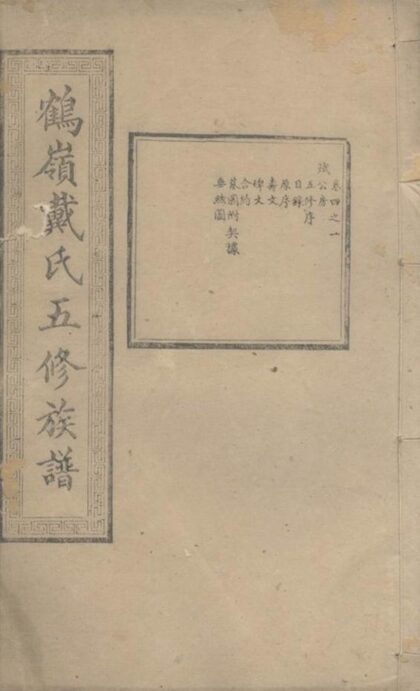 鶴嶺戴氏五修族譜
卷四之一
公房
五修序
目錄
原序
壽文
碑文
合約
園州契據
垂絲圖